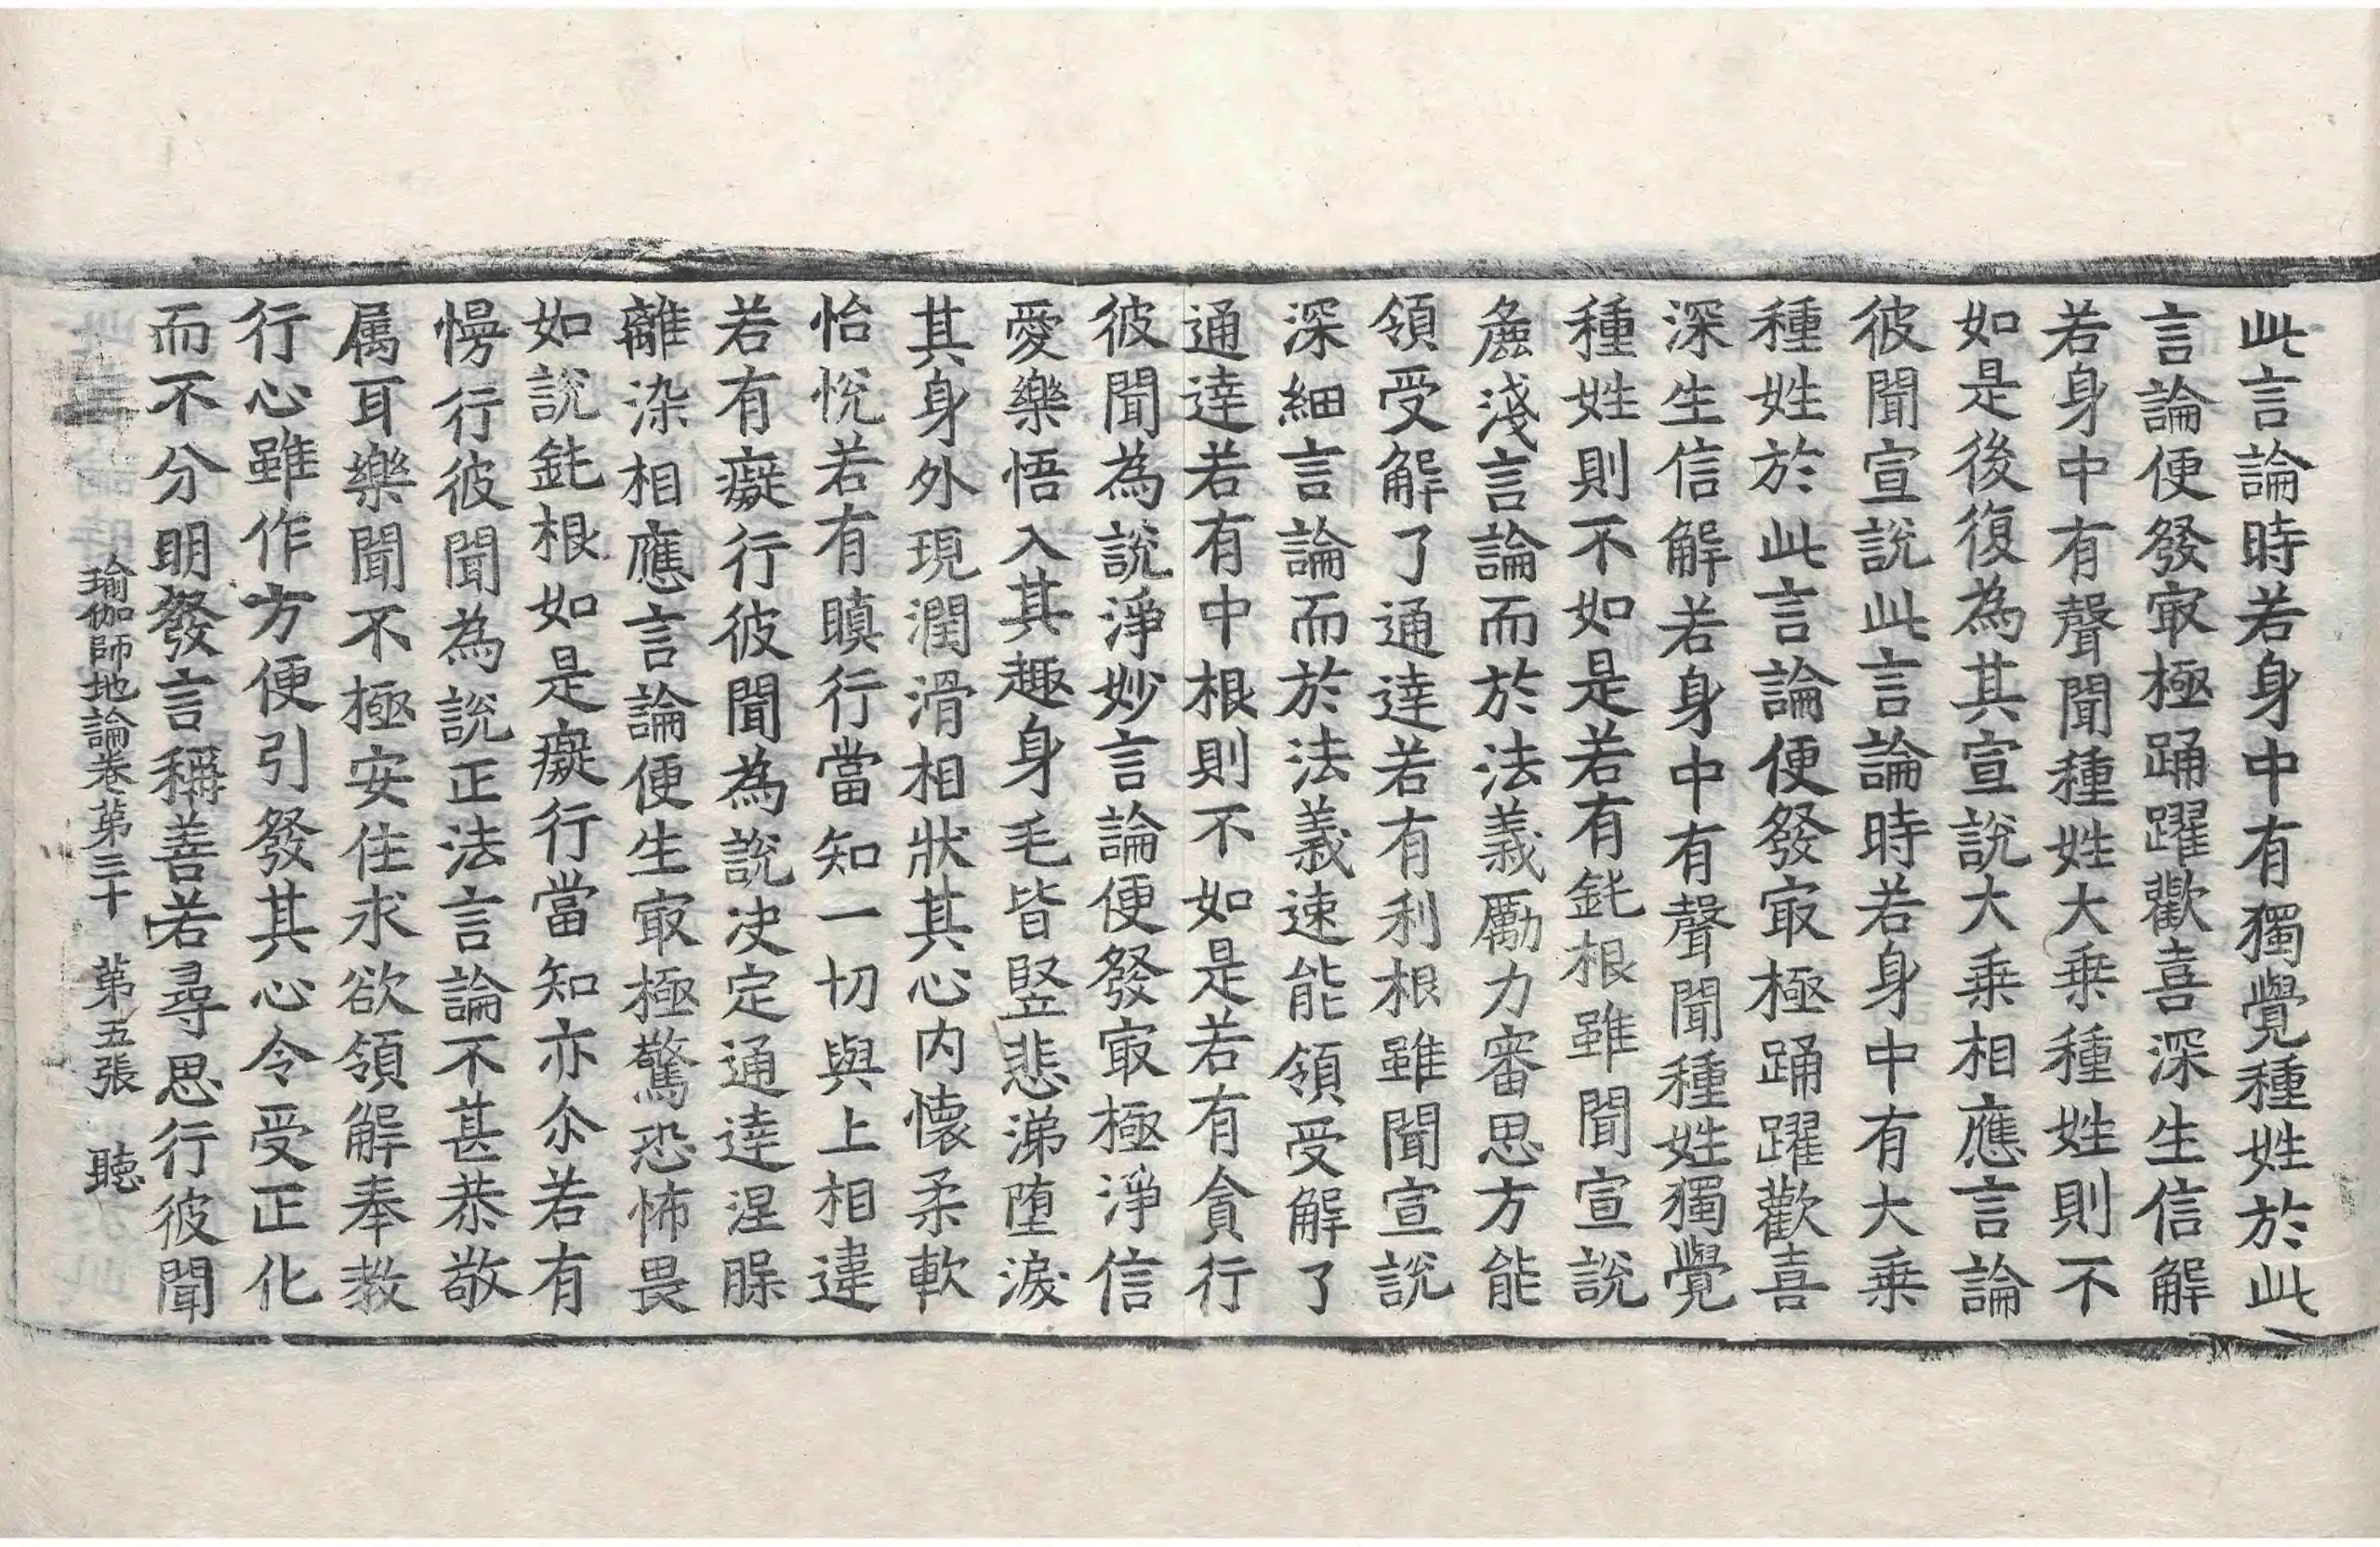 此言論時若身中有獨覺種姓於此
言論便發㝡極踊躍歡喜深生信解
若身中有聲聞種姓大乗種姓則不
如是後復為其宣說大乗相應言論
彼聞宣說此言論時若身中有大乗
種姓於此言論便發㝡極踊躍歡喜
深生信解若身中有聲聞種姓獨覺
種姓則不如是若有鈍根雖聞宣說
麁淺言論而於法義勵力審思方能
領受解了通達若有利根雖聞宣說
深細言論而於法義速能領受解了
通達若有中根則不如是若有貪行
彼聞為說淨妙言論便發㝡極淨信
愛樂悟入其趣身毛皆竪悲涕墮淚
其身外現潤滑相狀其心内懷柔軟
怡悅若有瞋行當知一切與上相違
若有癡行彼聞為說决定通達涅槃
離染相應言論便生㝡極驚恐怖畏
如說鈍根如是癡行當知亦尒若有
慢行彼聞為說正法言論不甚恭敬
属耳樂聞不極安住求欲領解奉教
行心雖作方便引發其心令受正化
而不分明發言稱善若尋思行彼聞
瑜伽師地論卷第三十 第五張 聽